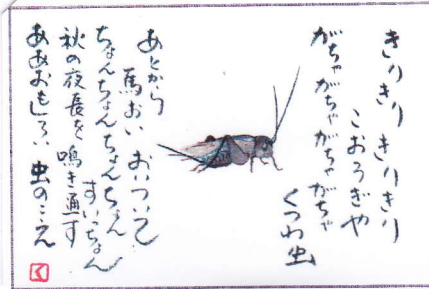 きりきり きりきり
こおろぎや
がちゃがちゃがちゃがちゃ
くつわ虫
あとから
馬おい おいついて
ちょんちょんちょんちょん
すいっちょん
秋の夜長を 鳴き通す
ああおもしろい 虫のこえ
く